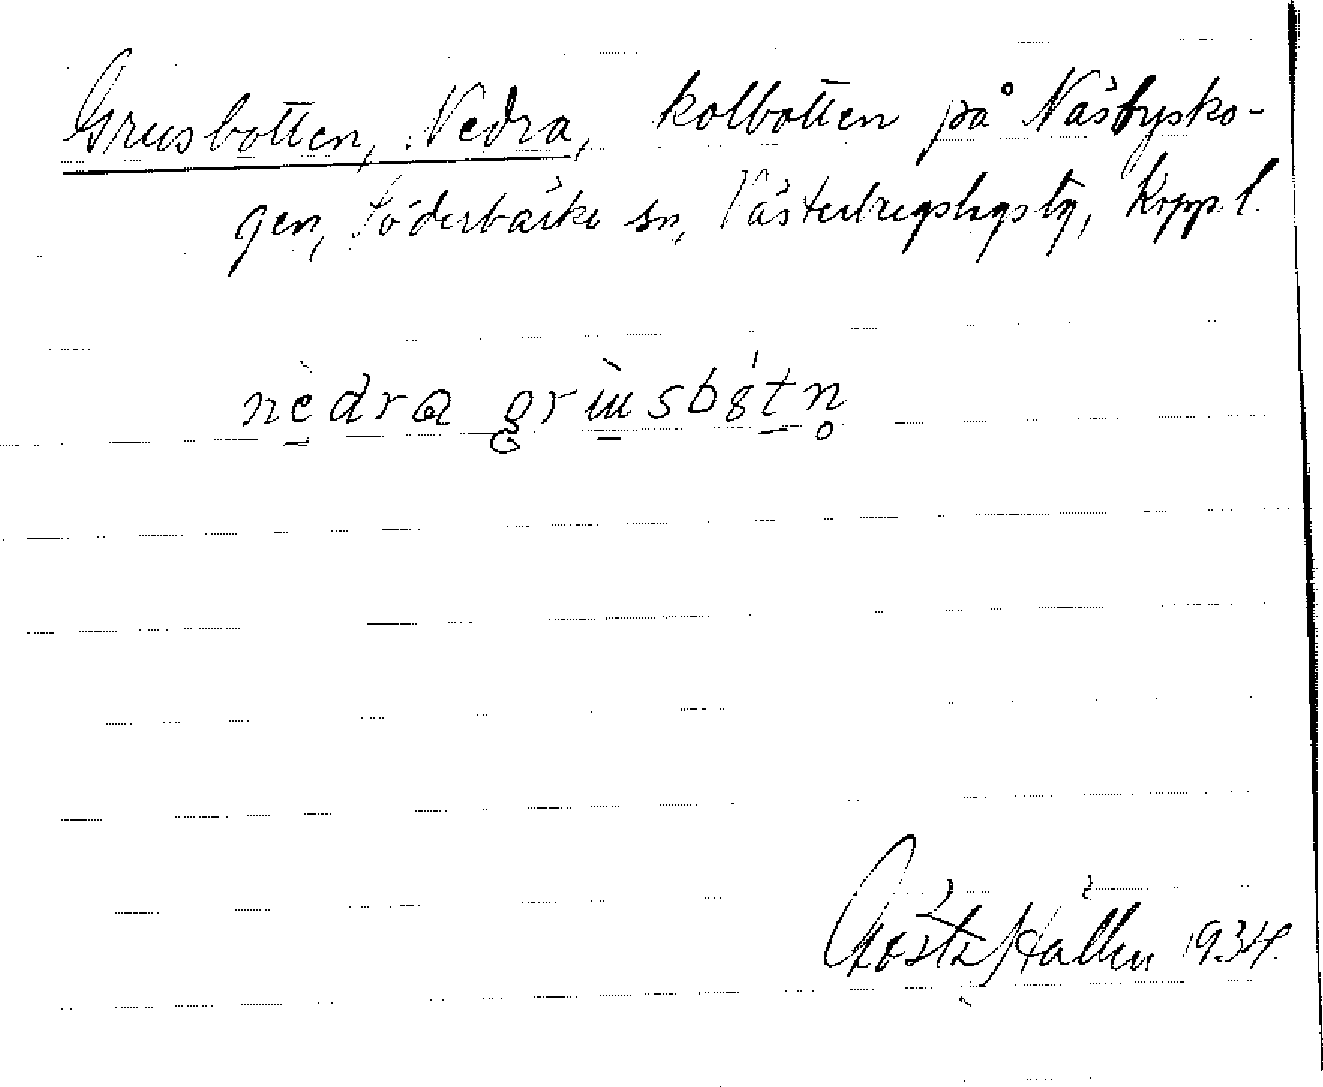 Grusbotten, Nedra, kolbotten på Näsbysko-
gen, Söderbärke sn, Västerbergslags tg, Kopp. l.
nèdra grùsbótn̥
Gösta Hallén 1934.